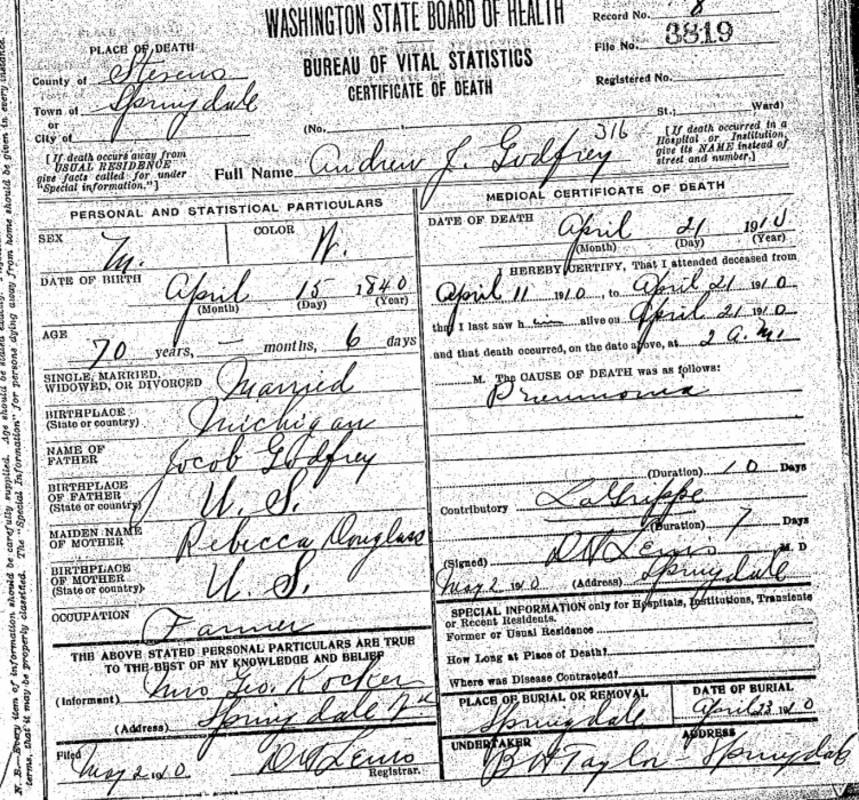 WASHINGTON STATE BOARD OF HEALTH
BUREAU OF VITAL STATISTICS
CERTIFICATE OF DEATH
Record No. 8
File No. 3819
Registered No.
PLACE OF DEATH
County of Stevens
Town of Springdale
or
City of
(No. St.; Ward)
[If death occurs away from
USUAL RESIDENCE
give facts called for under
"Special information."]
316
Full Name Andrew J. Godfrey
[If death occurred in a
Hospital or Institution,
give its NAME instead of
street and number.]
PERSONAL AND STATISTICAL PARTICULARS
SEX M. COLOR W.
DATE OF BIRTH April 15 1840
(Month) (Day) (Year)
AGE
70 years, — months, 6 days
SINGLE, MARRIED,
WIDOWED, OR DIVORCED Married
BIRTHPLACE
(State or country) Michigan
NAME OF
FATHER Jocob Godfrey
BIRTHPLACE
OF FATHER
(State or country) U. S.
MAIDEN NAME
OF MOTHER Rebecca Douglass
BIRTHPLACE
OF MOTHER
(State or country) U. S.
OCCUPATION Farmer
THE ABOVE STATED PERSONAL PARTICULARS ARE TRUE
TO THE BEST OF MY KNOWLEDGE AND BELIEF
(Informant) Mrs Geo. Rocker
(Address) Springdale
Filed May 2 1910 D N Lewis
Registrar.
MEDICAL CERTIFICATE OF DEATH
DATE OF DEATH April 21 1910
(Month) (Day) (Year)
I HEREBY CERTIFY, That I attended deceased from
April 11 1910, to April 21 1910
that I last saw him alive on April 21 1910
and that death occurred, on the date above, at 2 a.m.
M. The CAUSE OF DEATH was as follows:
Pneumonia
(Duration) 10 Days
Contributory LaGrippe
(Duration) 7 Days
(Signed) D N Lewis M. D
May 2 1910 (Address) Springdale
SPECIAL INFORMATION only for Hospitals, Institutions, Transients
or Recent Residents.
Former or Usual Residence
How Long at Place of Death?
Where was Disease Contracted?
PLACE OF BURIAL OR REMOVAL DATE OF BURIAL
Springdale April 23 1910
UNDERTAKER ADDRESS
B H Taylor - Springdale
N. B.—Every item of information should be carefully supplied. Age should be stated exactly.
terms, that it may be properly classified. The "Special Information" for persons dying away from home should be given in every instance.